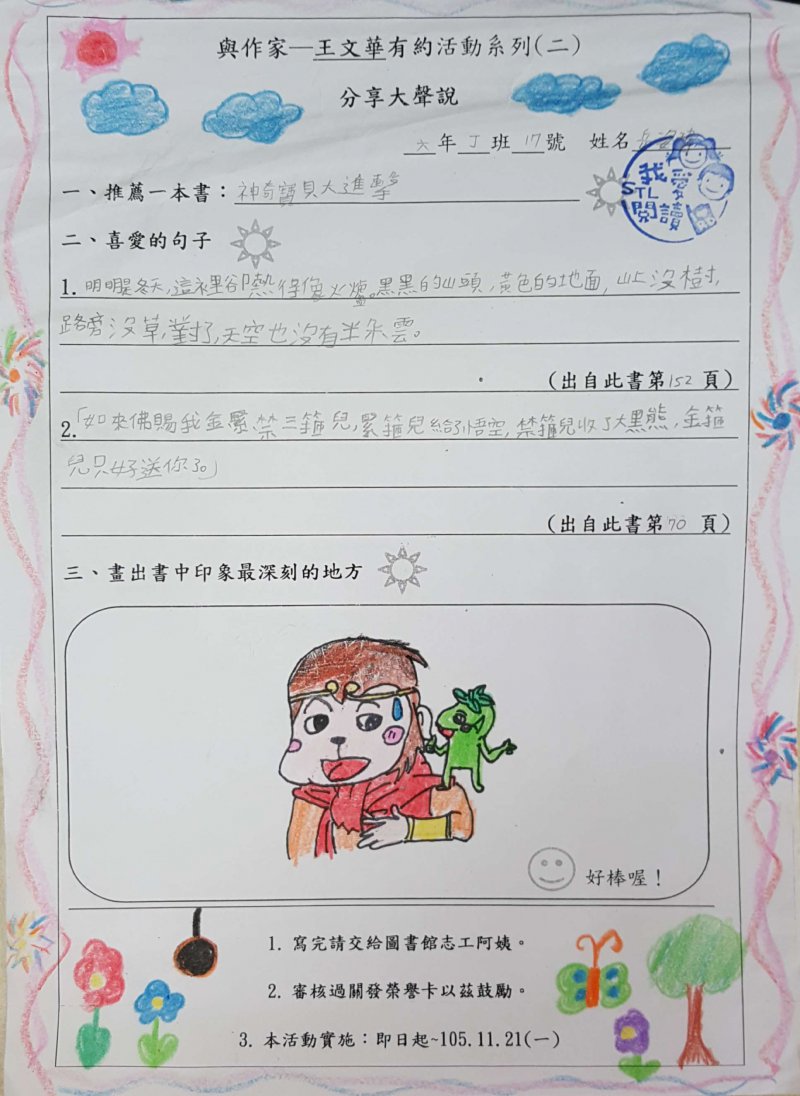 與作家—王文華有約活動系列(二)
分享大聲說
六年丁班17號 姓名
我愛
STL
閱讀
一、推薦一本書：神奇寶貝大進擊
二、喜愛的句子
1. 明明是冬天，這裡卻熱得像火爐。黑黑的山頭，黃色的地面，山上沒樹，
路旁沒草，對了，天空也沒有半朵雲。
(出自此書第152頁)
2.「如來佛賜我金緊禁三箍兒，緊箍兒給了悟空，禁箍兒收了大黑熊，金箍
兒只好送你了。」
(出自此書第70頁)
三、畫出書中印象最深刻的地方
好棒喔！
1. 寫完請交給圖書館志工阿姨。
2. 審核過關發榮譽卡以茲鼓勵。
3. 本活動實施：即日起~105.11.21(一)